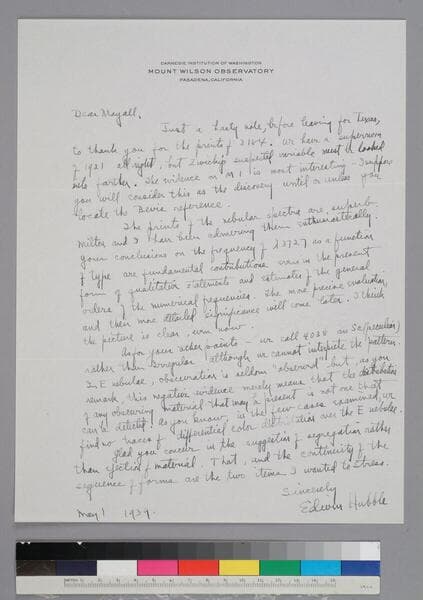 CARNEGIE INSTITUTION OF WASHINGTON
MOUNT WILSON OBSERVATORY
PASADENA, CALIFORNIA
Dear Mayall,
Just a hasty note, before leaving for Texas,
to thank you for the prints of 3184. We have a supernova
of 1921 all right, but Zwicky's suspected variable must be looked
into farther. The evidence on M 1 is most interesting - I suppose
you will consider this as the discovery until or unless you
locate the Bevis reference.
The prints of the nebular spectra are superb.
Milton and I have been admiring them enthusiastically.
Your conclusions on the frequency of λ3727 as a function
of type are fundamental contributions even in the present
form of qualitative statements and estimates of the general
orders of the numerical frequencies. The more precise evaluation,
and their more detailed significance will come later. I think
the picture is clear, even now.
As for your other points - we call 4038 an Sc (peculiar)
rather than irregular although we cannot interpret the pattern.
In E nebulae, obscuration is seldom "observed" but, as you
remark, this negative evidence merely means that the distribution
of any obscuring material that may be present is not one that
can be detected. As you know, in the few cases examined, we
find no traces of differential color distribution over the E nebulae.
Glad you concur in the suggestion of segregation rather
than ejection of material. That, and the continuity of the
sequence of forms are the two items I wanted to stress.
Sincerely
Edwin Hubble
May 1 1939.